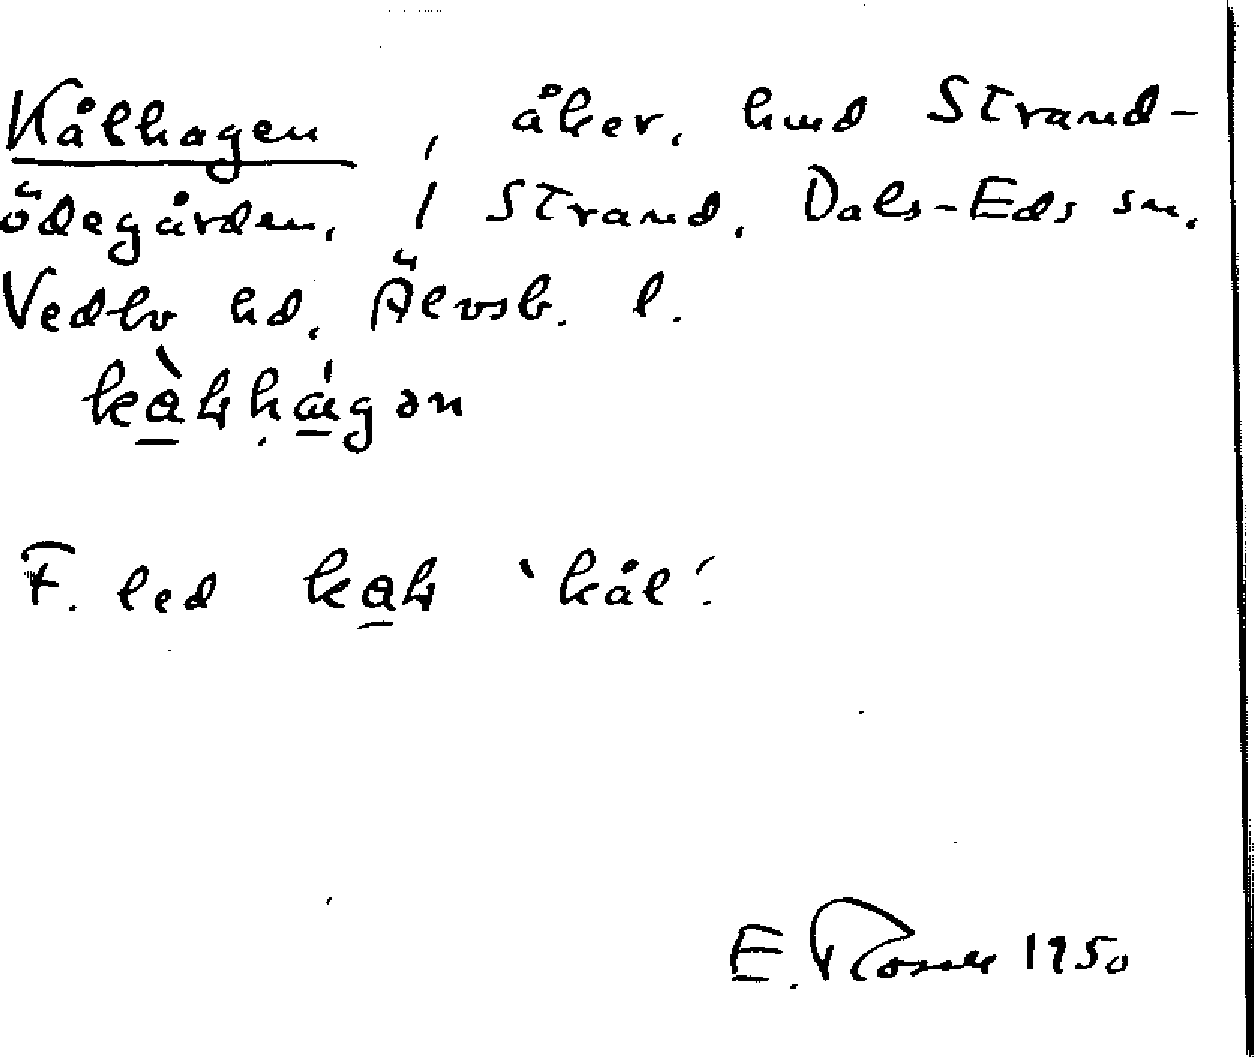 Kålhagen, åker, hmd Strand-
ödegården, 1 Strand, Dals-Eds sn,
Vedbo hd, Älvsb. l.
kàɽhágən
F. led kaɽ 'kål'.
E. 1950